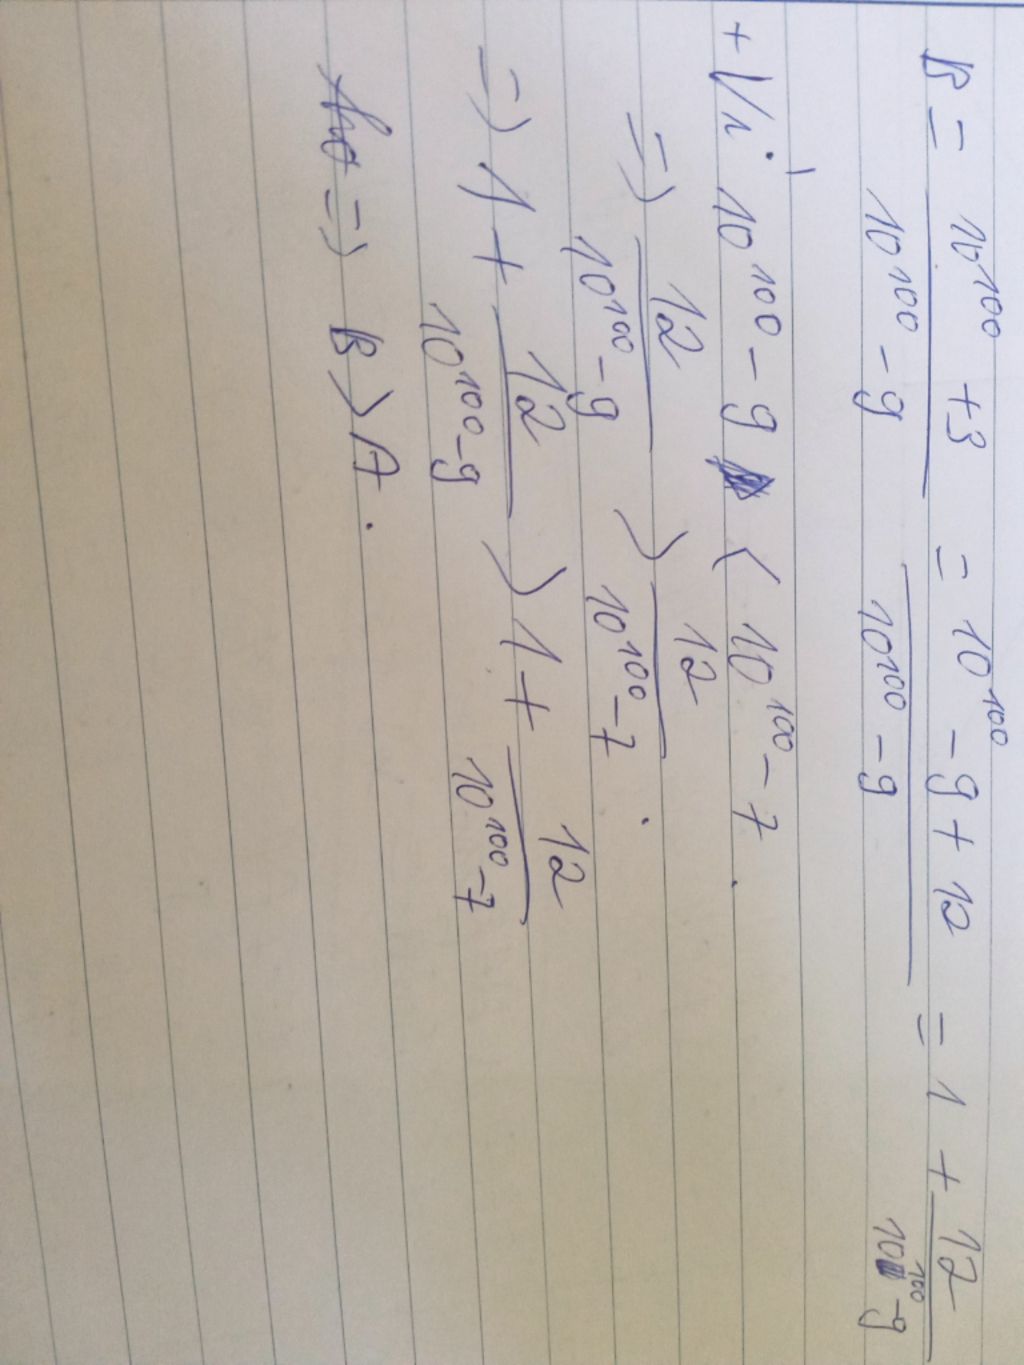 B = \frac{10^{100} + 3}{10^{100} - 9} = \frac{10^{100} - 9 + 12}{10^{100} - 9} = 1 + \frac{12}{10^{100} - 9}
+ Vì 10^{100} - 9 < 10^{100} - 7.
=> \frac{12}{10^{100} - 9} > \frac{12}{10^{100} - 7}.
=> 1 + \frac{12}{10^{100} - 9} > 1 + \frac{12}{10^{100} - 7}
=> B > A.